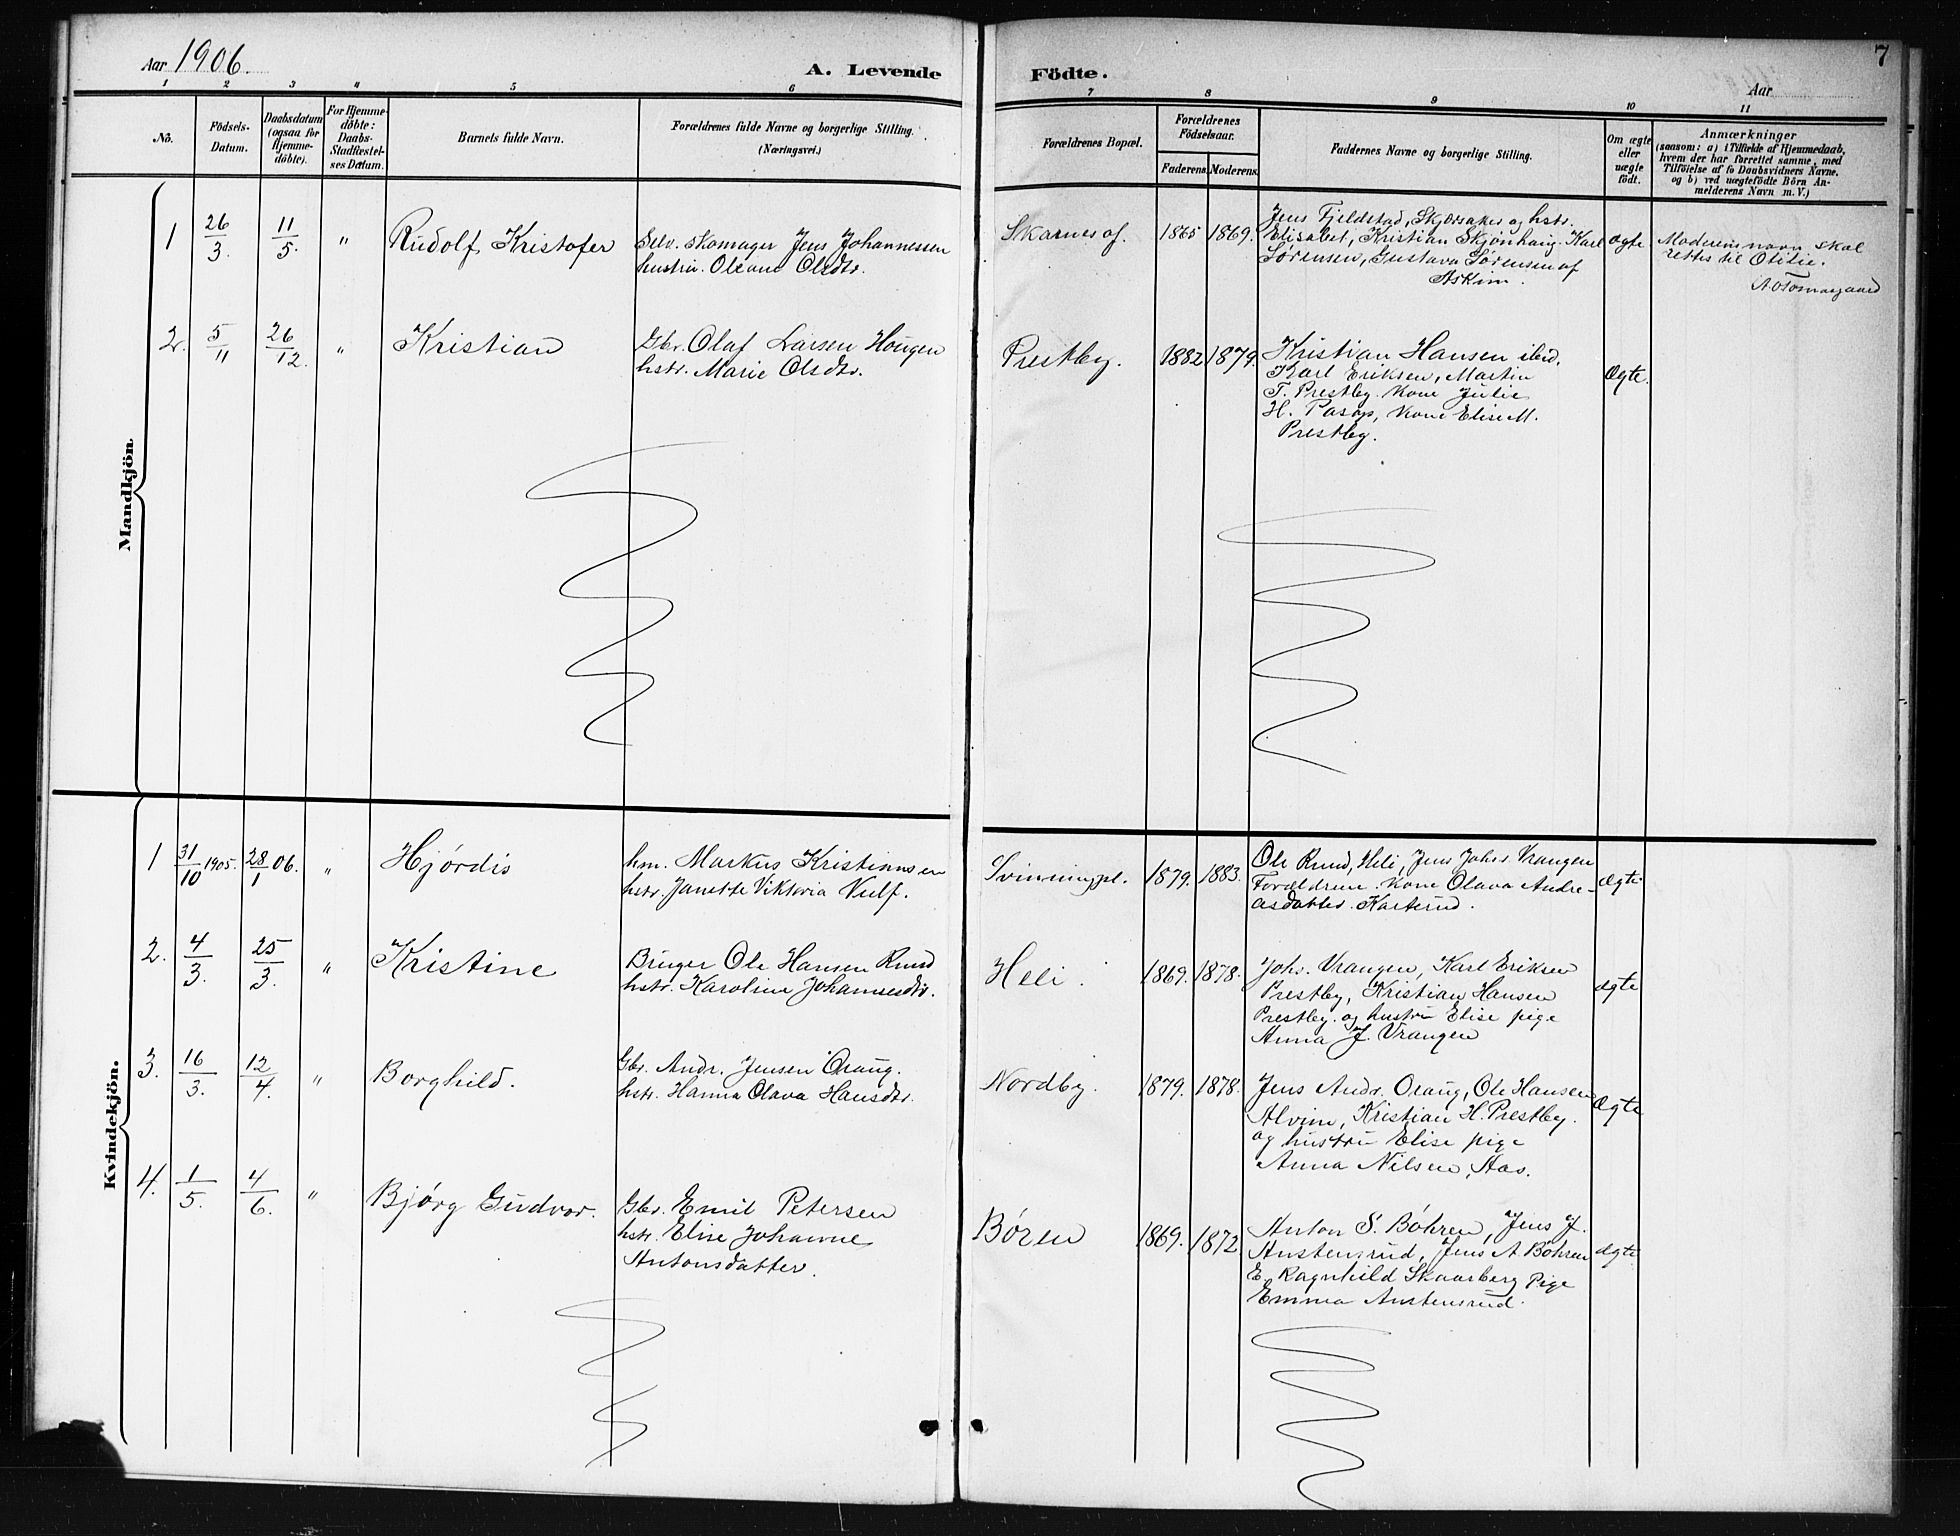 7
Aar 1906.
A. Levende Födte.
Aar
1 2 3 4 5 6 7 8 9 10 11
No.
Födsels-
Datum.
Daabsdatum
(ogsaa for
Hjemme-
döbte).
For Hjemme-
döbte:
Daabs-
Stadfæstel-
ses Datum.
Barnets fulde Navn.
Forældrenes fulde Navne og borgerlige Stilling.
(Næringsvei.)
Forældrenes Bopæl.
Forældrenes
Födselsaar.
Faderens. Moderens.
Faddernes Navne og borgerlige Stilling.
Om ægte
eller
uægte
födt.
Anmærkninger
(saasom: a) i Tilfælde af Hjemmedaab,
hvem der har forrettet samme, med
Tilföielse af to Daabsvidners Navne.
og b) ved uægtefödte Börn An-
melderens Navn m. V.)
Mandkjön
1 26/3. 11/5. " Rudolf Kristofer
Selv. skomager Jens Johannessen
hustru Oleane Olsdtr.
Skarnes af. 1865 1869.
Jens Fjeldstad, Skjørsaker og hstr.
Elisabet, Kristian Skjønhaug. Karl
Sørensen, Gustava Sørensen af
Askim.
ægte
Moderens navn skal
rettes til Otilie.
2. 5/11 26/12. " Kristian
Gbr. Olaf Larsen Hougen
hstr. Marie Olsdtr.
Prestby. 1882 1879.
Kristian Hansen ibid.
Karl Eriksen, Martin
T. Prestby. Kone Julie
H. Kone Elise M.
Prestby.
Ægte.
Kvindekjön.
1 31/10 1905. 28/1 06. " Hjørdis
hm. Markus Kristiansen
hstr. Janette Viktoria Vulf.
Svinningpl. 1879. 1883.
Ole Rund, Heli, Jens Johs. Vrangen
Forældrene. Kone Olava Andre-
asdatter. Karterud.
Ægte
2. 4/3. 25/3. " Kristine
Bruger Ole Hansen Rund
hstr. Karoline Johannesdtr.
Heli. 1869. 1878.
Johs. Vrangen, Karl Eriksen
Prestby, Kristian Hansen
Prestby. og hustru Elise pige
Anna J. Vrangen
ægte
3. 16/3. 12/4. " Borghild.
Gbr. Andr. Jensen Oraug.
hstr. Hanna Olava Hansdtr.
Nordby. 1879. 1878.
Jens Andr. Oraug, Ole Hansen
Alvim, Kristian H. Prestby.
og hustru Elise pige
Anna Nilsen, Aas.
Ægte
4. 1/5. 4/6. " Bjørg Gudvor.
Gbr. Emil Petersen
hstr. Elise Johanne
Antonsdatter.
Børen 1869. 1872
Anton S. Bøhren, Jens J.
Austensrud, Jens A Bøhren
E. Ragnhild Skaarberg Pige
Emma Austensrud.
ægte